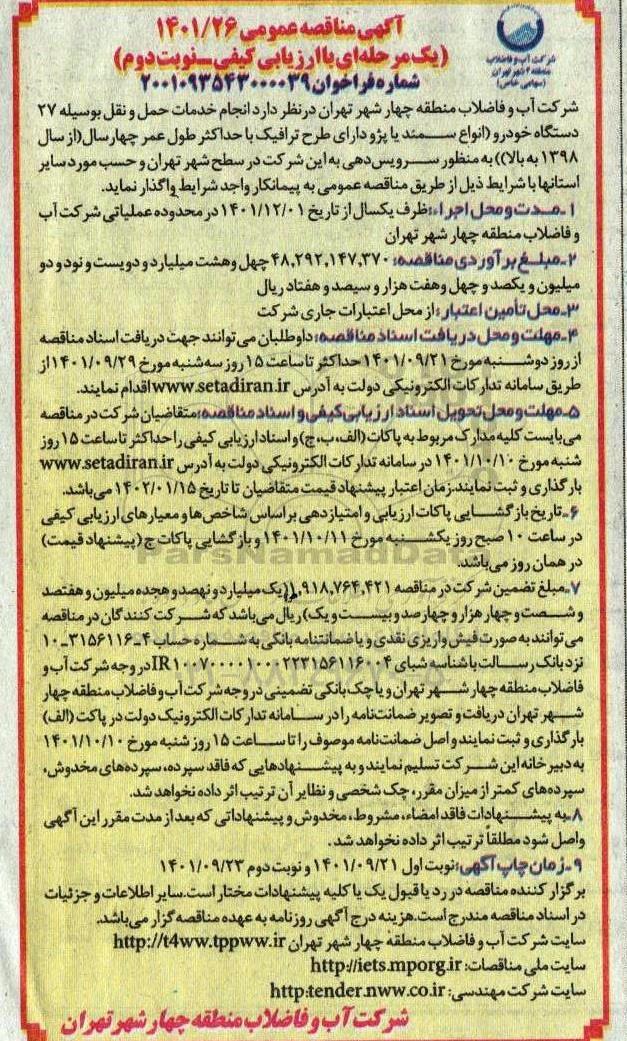 آگهی مناقصه عمومی ۱۴۰۱/۲۶
(یک مرحله‌ای با ارزیابی کیفی_نوبت دوم)
شماره فراخوان ۲۰۰۱۰۹۳۵۴۳۰۰۰۰۳۹
شرکت آب و فاضلاب
منطقه ۴ شهر تهران
(سهامی خاص)
شرکت آب و فاضلاب منطقه چهار شهر تهران درنظر دارد انجام خدمات حمل و نقل بوسیله ۲۷
دستگاه خودرو (انواع سمند یا پژو دارای طرح ترافیک با حداکثر طول عمر چهار سال(از سال
۱۳۹۸ به بالا)) به منظور سرویس‌دهی به این شرکت در سطح شهر تهران و حسب مورد سایر
استانها با شرایط ذیل از طریق مناقصه عمومی به پیمانکار واجد شرایط واگذار نماید.
۱_مدت و محل اجراء: ظرف یکسال از تاریخ ۱۴۰۱/۱۲/۰۱ در محدوده عملیاتی شرکت آب
و فاضلاب منطقه چهار شهر تهران
۲_مبلغ برآوردی مناقصه: ۴۸,۲۹۲,۱۴۷,۳۷۰ چهل و هشت میلیارد و دویست و نود و دو
میلیون و یکصد و چهل و هفت هزار و سیصد و هفتاد ریال
۳_محل تأمین اعتبار: از محل اعتبارات جاری شرکت
۴_مهلت و محل دریافت اسناد مناقصه: داوطلبان می‌توانند جهت دریافت اسناد مناقصه
از روز دوشنبه مورخ ۱۴۰۱/۰۹/۲۱ حداکثر تا ساعت ۱۵ روز سه‌شنبه مورخ ۱۴۰۱/۰۹/۲۹ از
طریق سامانه تدارکات الکترونیکی دولت به آدرس www.setadiran.ir اقدام نمایند.
۵_مهلت و محل تحویل اسناد ارزیابی کیفی و اسناد مناقصه: متقاضیان شرکت در مناقصه
می‌بایست کلیه مدارک مربوط به پاکات (الف،ب،ج) و اسناد ارزیابی کیفی را حداکثر تا ساعت ۱۵ روز
شنبه مورخ ۱۴۰۱/۱۰/۱۰ در سامانه تدارکات الکترونیکی دولت به آدرس www.setadiran.ir
بارگذاری و ثبت نمایند.زمان اعتبار پیشنهاد قیمت متقاضیان تا تاریخ ۱۴۰۲/۰۱/۱۵ می‌باشد.
۶_تاریخ بازگشایی پاکات ارزیابی و امتیازدهی بر اساس شاخص‌ها و معیارهای ارزیابی کیفی
در ساعت ۱۰ صبح روز یکشنبه مورخ ۱۴۰۱/۱۰/۱۱ و بازگشایی پاکات ج (پیشنهاد قیمت)
در همان روز می‌باشد.
ParsNamadData
۷_مبلغ تضمین شرکت در مناقصه ۱,۹۱۸,۷۶۴,۴۲۱(یک میلیارد و نهصد و هجده میلیون و هفتصد
و شصت و چهار هزار و چهارصد و بیست و یک) ریال می‌باشد که شرکت کنندگان در مناقصه
می‌توانند به صورت فیش واریزی نقدی و یا ضمانتنامه بانکی به شماره حساب ۴_۳۱۵۶۱۱۶_۱۰
نزد بانک رسالت با شناسه شبای IR۱۰۰۷۰۰۰۰۱۰۰۰۲۲۳۱۵۶۱۱۶۰۰۴ در وجه شرکت آب و
فاضلاب منطقه چهار شهر تهران و یا چک بانکی تضمینی در وجه شرکت آب و فاضلاب منطقه چهار
شهر تهران دریافت و تصویر ضمانت‌نامه را در سامانه تدارکات الکترونیک دولت در پاکت (الف)
بارگذاری و ثبت نمایند و اصل ضمانت‌نامه موصوف را تا ساعت ۱۵ روز شنبه مورخ ۱۴۰۱/۱۰/۱۰
به دبیرخانه این شرکت تسلیم نمایند و به پیشنهادهایی که فاقد سپرده، سپرده‌های مخدوش،
سپرده‌های کمتر از میزان مقرر، چک شخصی و نظایر آن ترتیب اثر داده نخواهد شد.
۸_به پیشنهادات فاقد امضاء، مشروط، مخدوش و پیشنهاداتی که بعد از مدت مقرر این آگهی
واصل شود مطلقاً ترتیب اثر داده نخواهد شد.
۹_زمان چاپ آگهی: نوبت اول ۱۴۰۱/۰۹/۲۱ و نوبت دوم ۱۴۰۱/۰۹/۲۳
برگزار کننده مناقصه در رد یا قبول یک یا کلیه پیشنهادات مختار است.سایر اطلاعات و جزئیات
در اسناد مناقصه مندرج است.هزینه درج آگهی روزنامه به عهده مناقصه گزار می‌باشد.
سایت شرکت آب و فاضلاب منطقه چهار شهر تهران http://t4ww.tppww.ir
سایت ملی مناقصات: http://iets.mporg.ir
سایت شرکت مهندسی: http:tender.nww.co.ir
شرکت آب و فاضلاب منطقه چهار شهر تهران